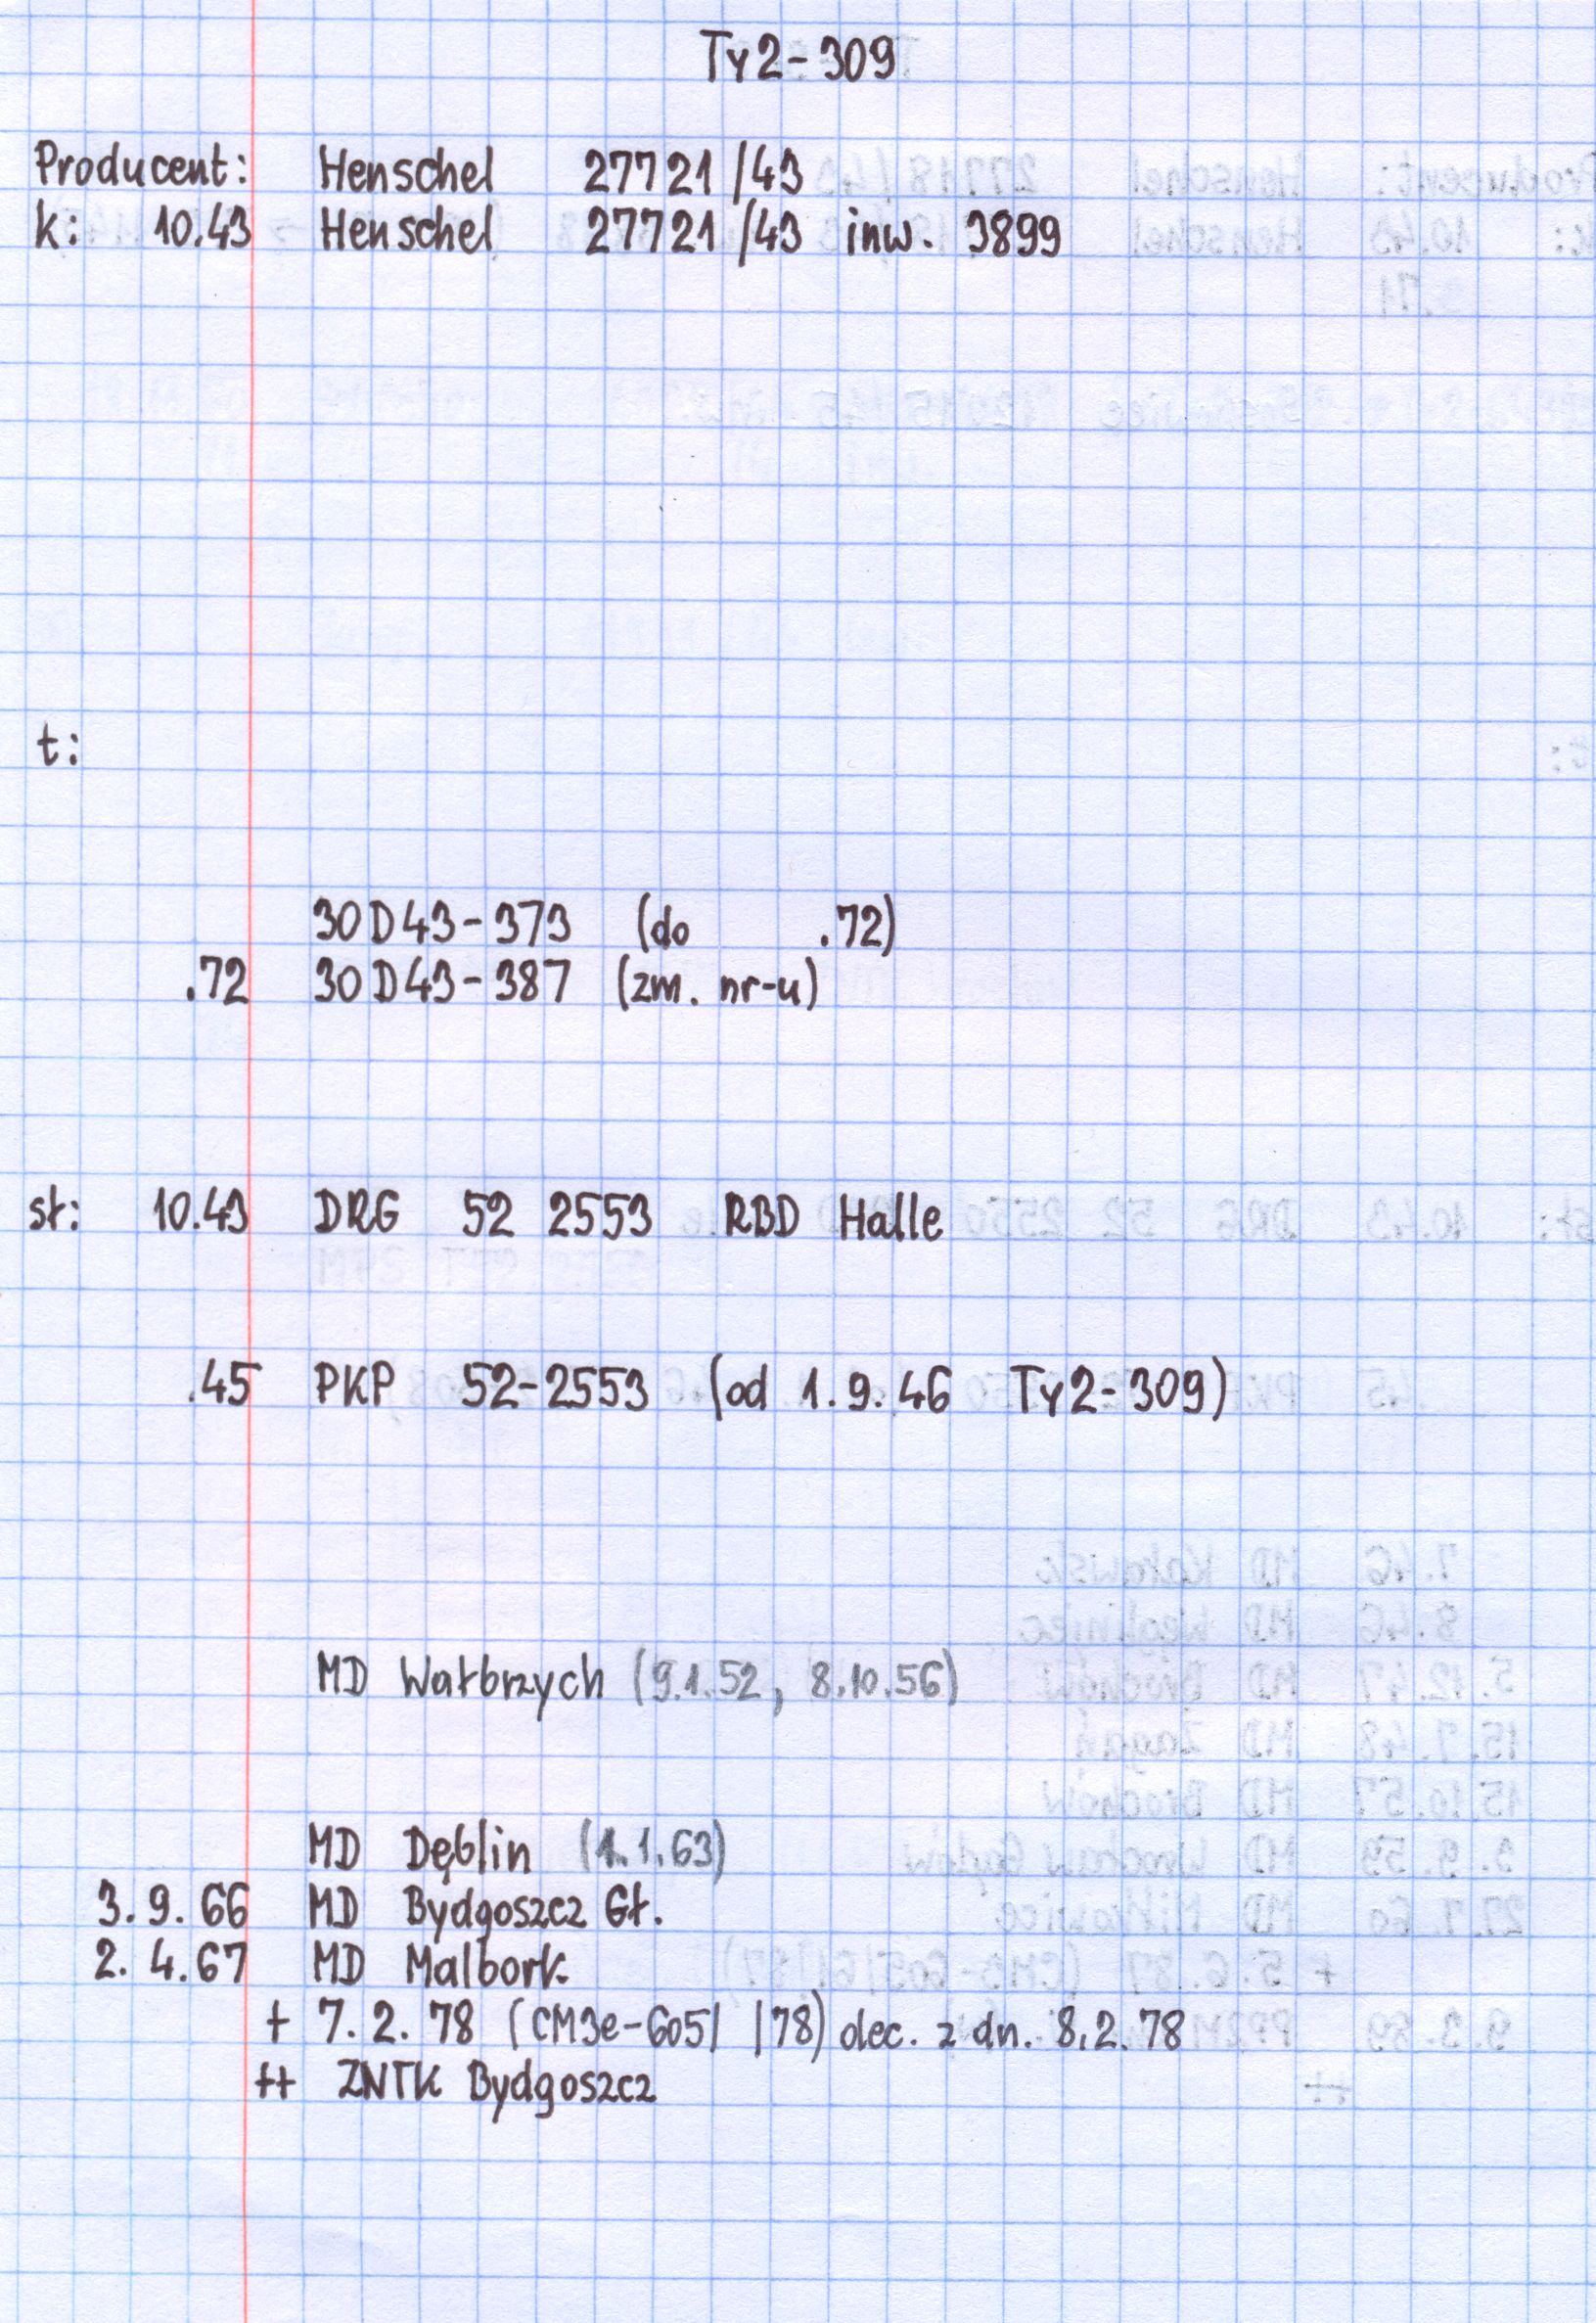 Ty2-309
Producent: Henschel 27721/43
k: 10.43 Henschel 27721/43 inw. 3899
t:
30D43-373 (do .72)
.72 30D43-387 (zm. nr-u)
st: 10.43 DRG 52 2553 RBD Halle
.45 PKP 52-2553 (od 1.9.46 Ty2-309)
MD Wałbrzych (9.1.52, 8.10.56)
MD Dęblin (1.1.63)
3.9.66 MD Bydgoszcz Gł.
2.4.67 MD Malbork
+ 7.2.78 (CM3e-605/ /78) dec. z dn. 8.2.78
++ ZNTK Bydgoszcz